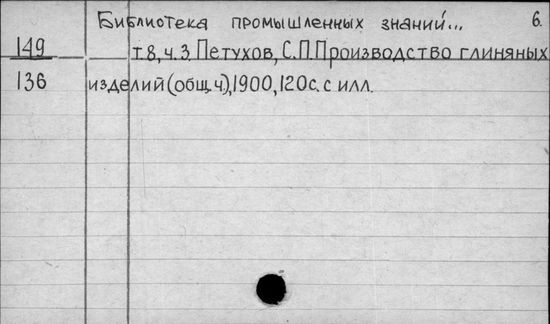 Библиотека промышленных знаний... 6.
149 т.8, ч.3. Петухов, С.П. Производство глиняных
136 изделий (общ.ч), 1900, 120с. с илл.